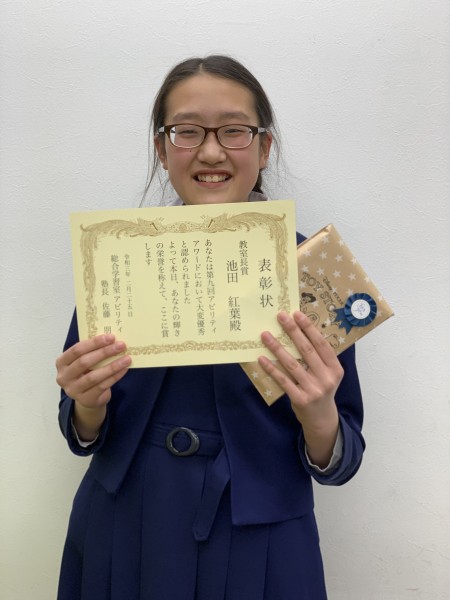 表彰状
教室長賞
池田 紅葉殿
あなたは第九回アビリティ
アワードにおいて大変優秀
と認められました
よって本日、あなたの輝き
の栄誉を称えて、ここに賞
します
令和三年 二月二十五日
総合学習室 アビリティ
塾長 佐藤
TOY STORY